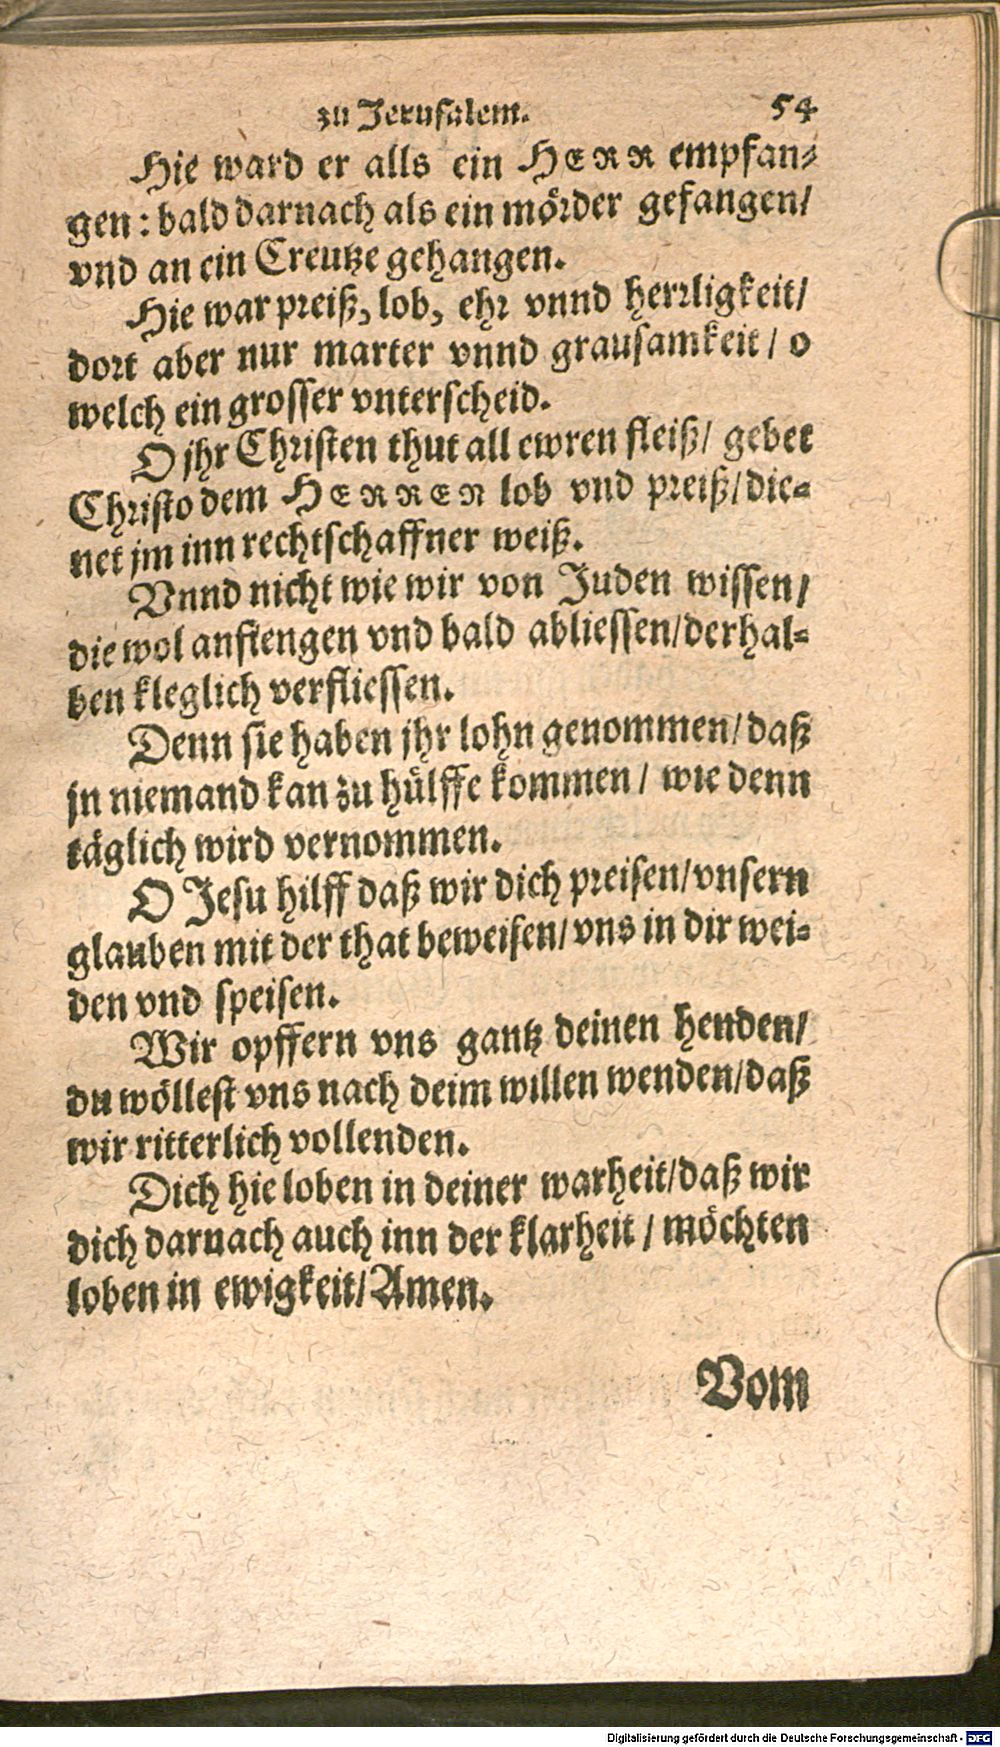 zu Jerusalem. 54
Hie ward er alls ein HERR empfan-
gen: bald darnach als ein mörder gefangen/
vnd an ein Creutze gehangen.
Hie war preiß, lob, ehr vnnd herrligkeit/
dort aber nur marter vnnd grausamkeit / o
welch ein grosser vnterscheid.
O jhr Christen thut all ewren fleiß/ gebet
Christo dem HERREN lob vnd preiß/die-
net jm inn rechtschaffner weiß.
Vnnd nicht wie wir von Juden wissen/
die wol anfiengen vnd bald abliessen/derhal-
ben kleglich verfliessen.
Denn sie haben jhr lohn genommen/daß
jn niemand kan zu hülffe kommen / wie denn
täglich wird vernommen.
O Jesu hilff daß wir dich preisen/vnsern
glauben mit der that beweisen/vns in dir wei-
den vnd speisen.
Wir opffern vns gantz deinen henden/
du wöllest vns nach deim willen wenden/daß
wir ritterlich vollenden.
Dich hie loben in deiner warheit/daß wir
dich darnach auch inn der klarheit / möchten
loben in ewigkeit/Amen.
Vom
Digitalisierung gefördert durch die Deutsche Forschungsgemeinschaft - DFG